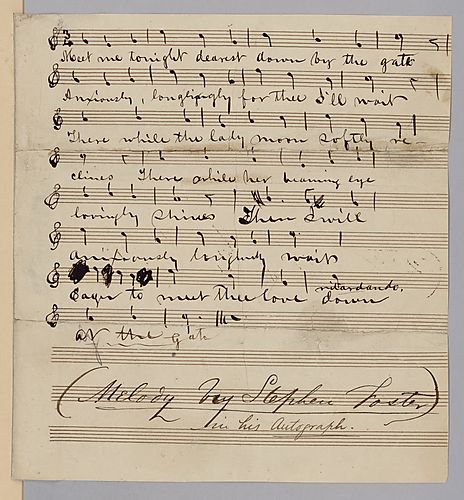 Meet me tonight dearest down by the gate
Anxiously, longlingly for thee I'll wait
There while the lady moon softly re
clines There while her beaming eye
lovingly shines Then I will
anixiously longlindy wait
ritardando.
Eager to meet thee love down
at the gate
(Melody by Stephen Foster)
in his Autograph.